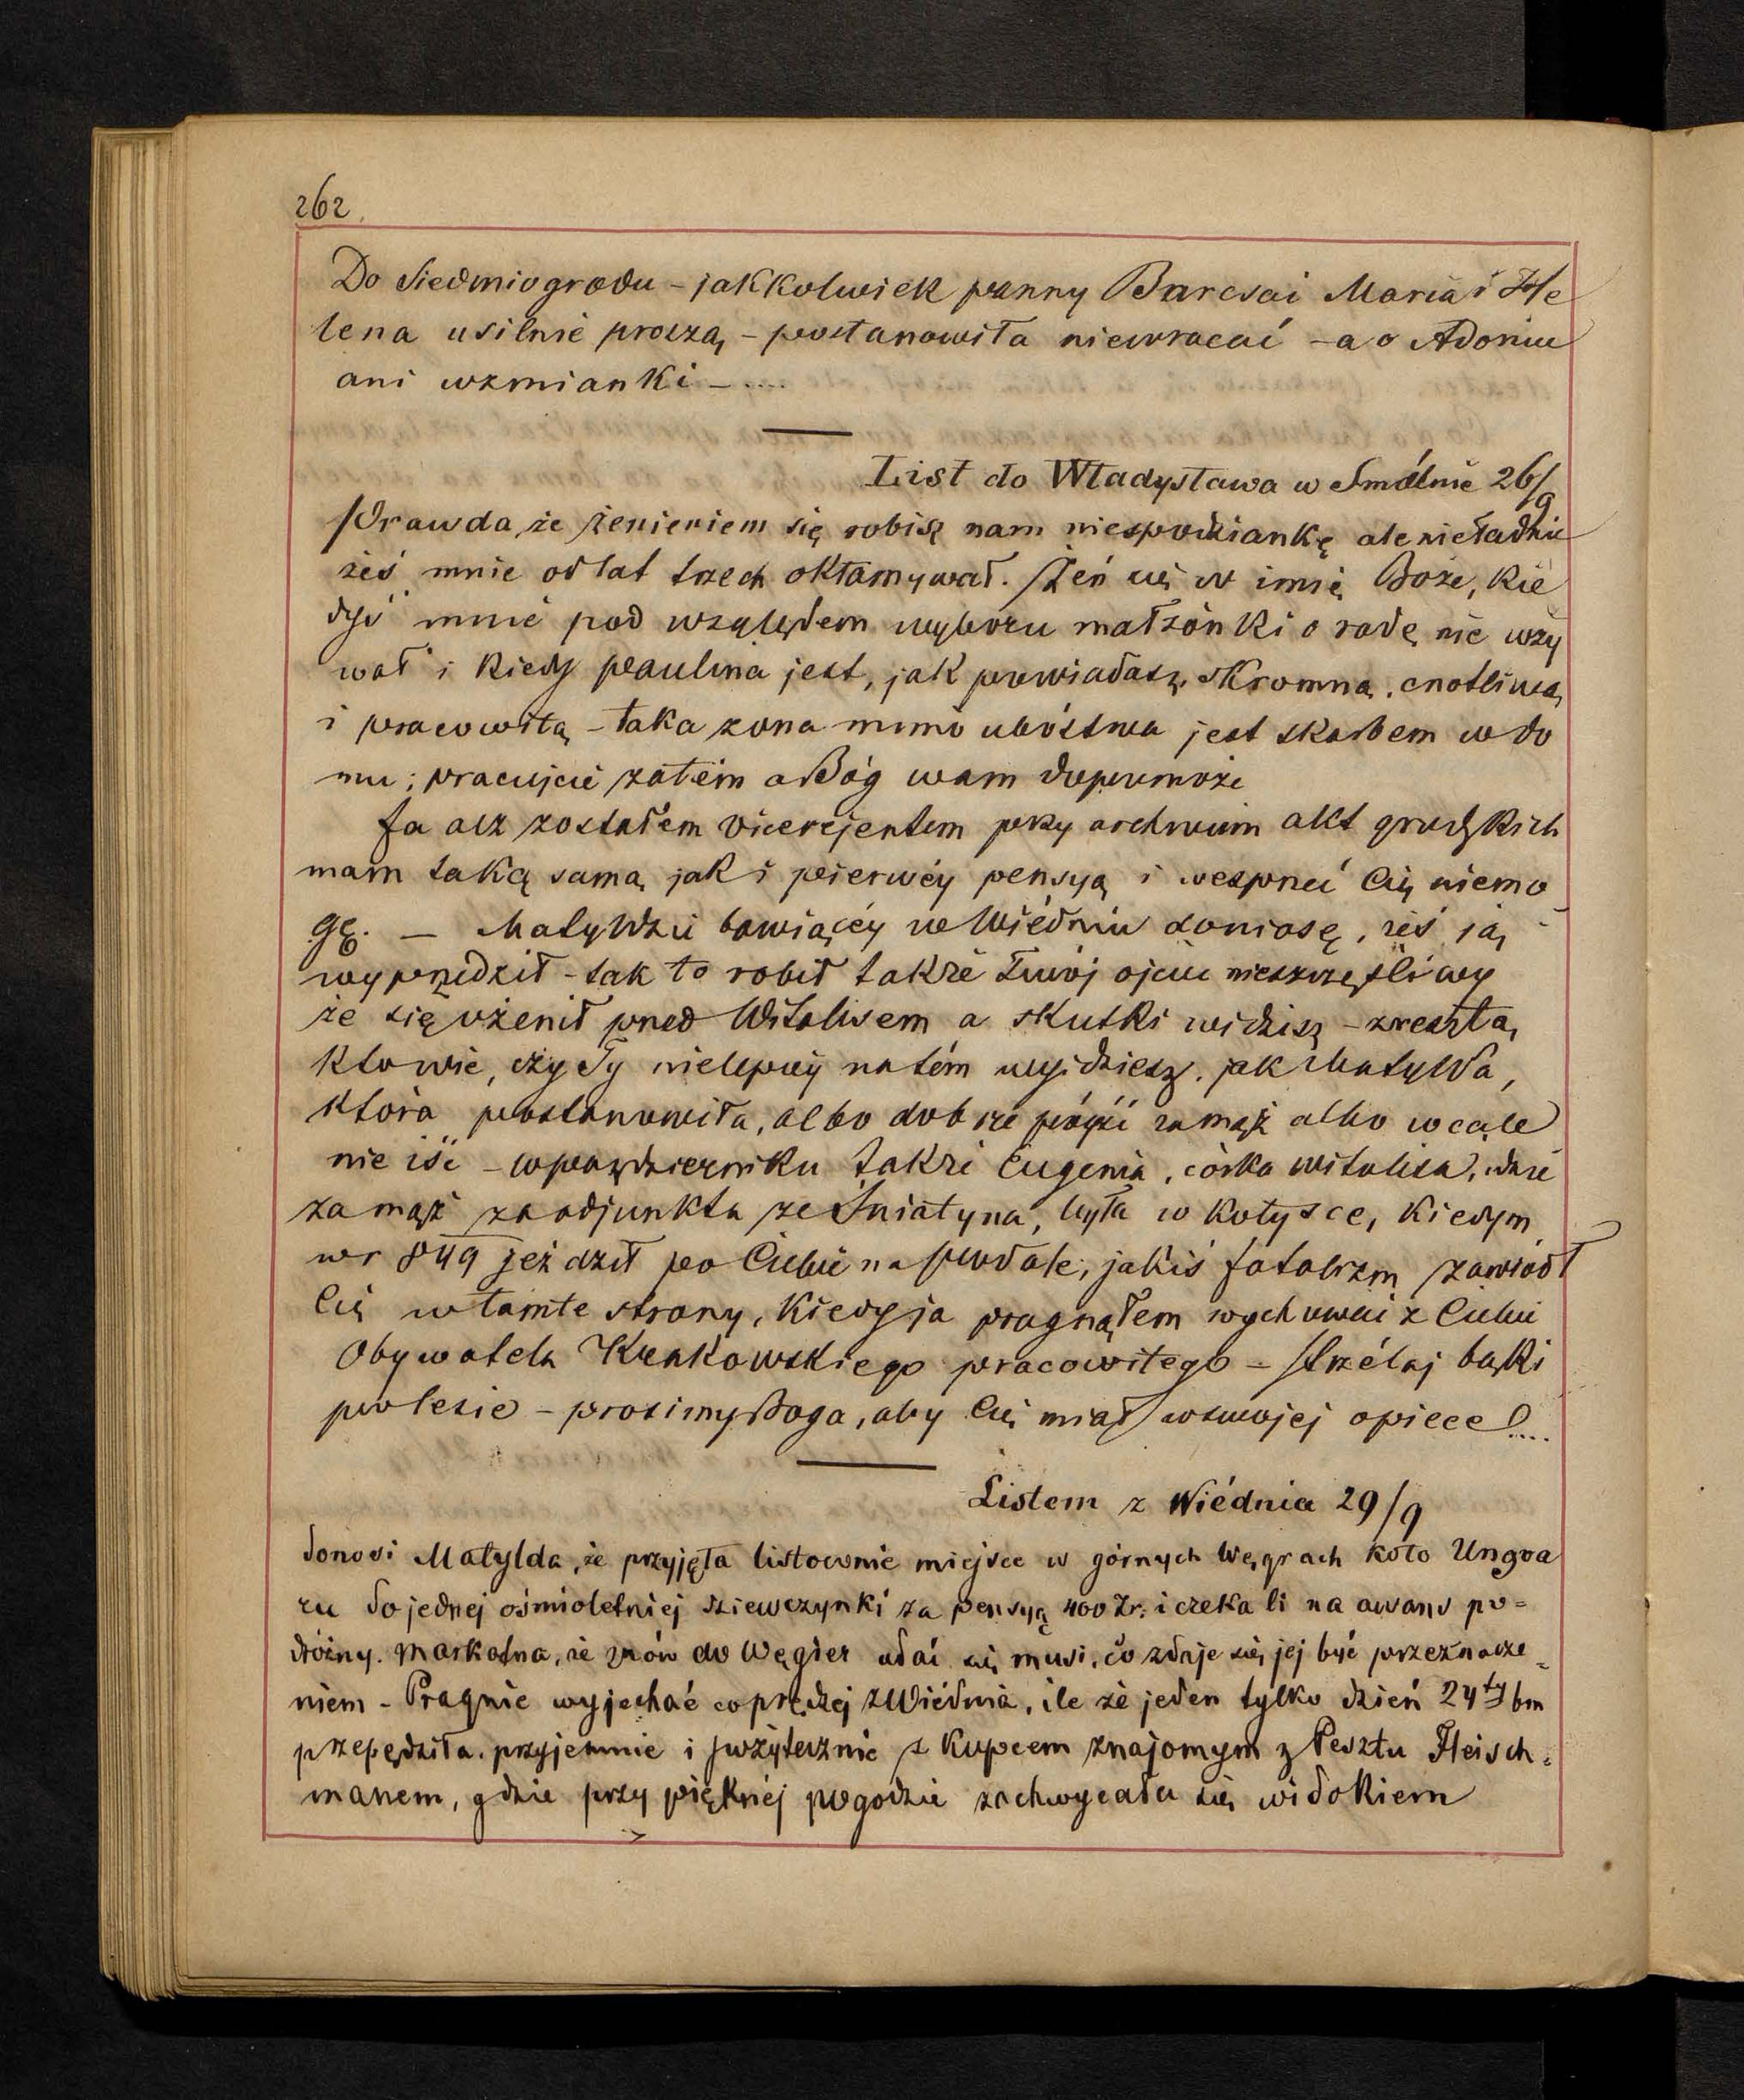 262.
Do Siedmiogrodu – jakkolwiek panny Barcsai Maria i He
lena usilnie proszą, – postanowiła niewracać – a o Adoniu
ani wzmianki – ....
List do Władysława w Smólnie 26/9
Prawda, że żenieniem się robisz nam niespodziankę ale nieładnie
żeś mnie od lat trzech okłamywał. Żeń się w imię Boże, kie
dyś mnie pod względem wyboru małżonki o radę nie wzy
wał i kiedy Paulina jest, jak powiadasz, skromną, cnotliwą,
i pracowitą – taka żona mimo ubóstwa jest skarbem w do
mu; pracujcie zatém a Bóg wam dopomoże
Ja acz zostałem vicerejentem przy archiwum akt grodzkich
mam taką samą jak i pierwéy pensyą i wesprzeć Cię niemo
gę. – Matyldzie bawiącéy we Wiédniu doniosę, żeś ją
wyprzedził – tak to robił także twój ojciec nieszczęśliwy
że się ożenił przed Witalisem a skutki widzisz – zresztą,
kto wie, czy Ty nielepiéj na tém wyjdziesz, jak Matylda,
która postanowiła, albo dobrze pójść za mąż albo wcale
nie iść – w październiku także Eugenia, córka Witalisa, idzie
za mąż za adjunkta ze Śniatyna, była w Kołysce, kiedym
w r 849 jeździł po Ciebie na Podole, jakiś fatalizm zawiódł
Cię w tamte strony, kiedy ja pragnąłem wychować z Ciebie
Obywatela Krakowskiego pracowitego – strzélaj bąki
po lesie – prosimy Boga, aby Cię miał w swojej opiece! ....
Listem z Wiédnia 29/9
donosi Matylda, że przyjęła listownie miejsce w górnych Węgrach koło Ungva
ru do jednej ośmioletniej dziewczynki za pensyą 400 Zr. i czeka li na awans po=
dróżny. Markotna, że znów do Węgier udać się musi, co zdaje się jej być przeznacze=
niem – Pragnie wyjechać coprędzej z Wiédnia, ile że jeden tylko dzień 24ty bm
przepędziła przyjemnie i pożytecznie z kupcem znajomym z Pesztu Fleisch=
manem, gdzie przy pięknéj pogodzie zachwycała się widokiem